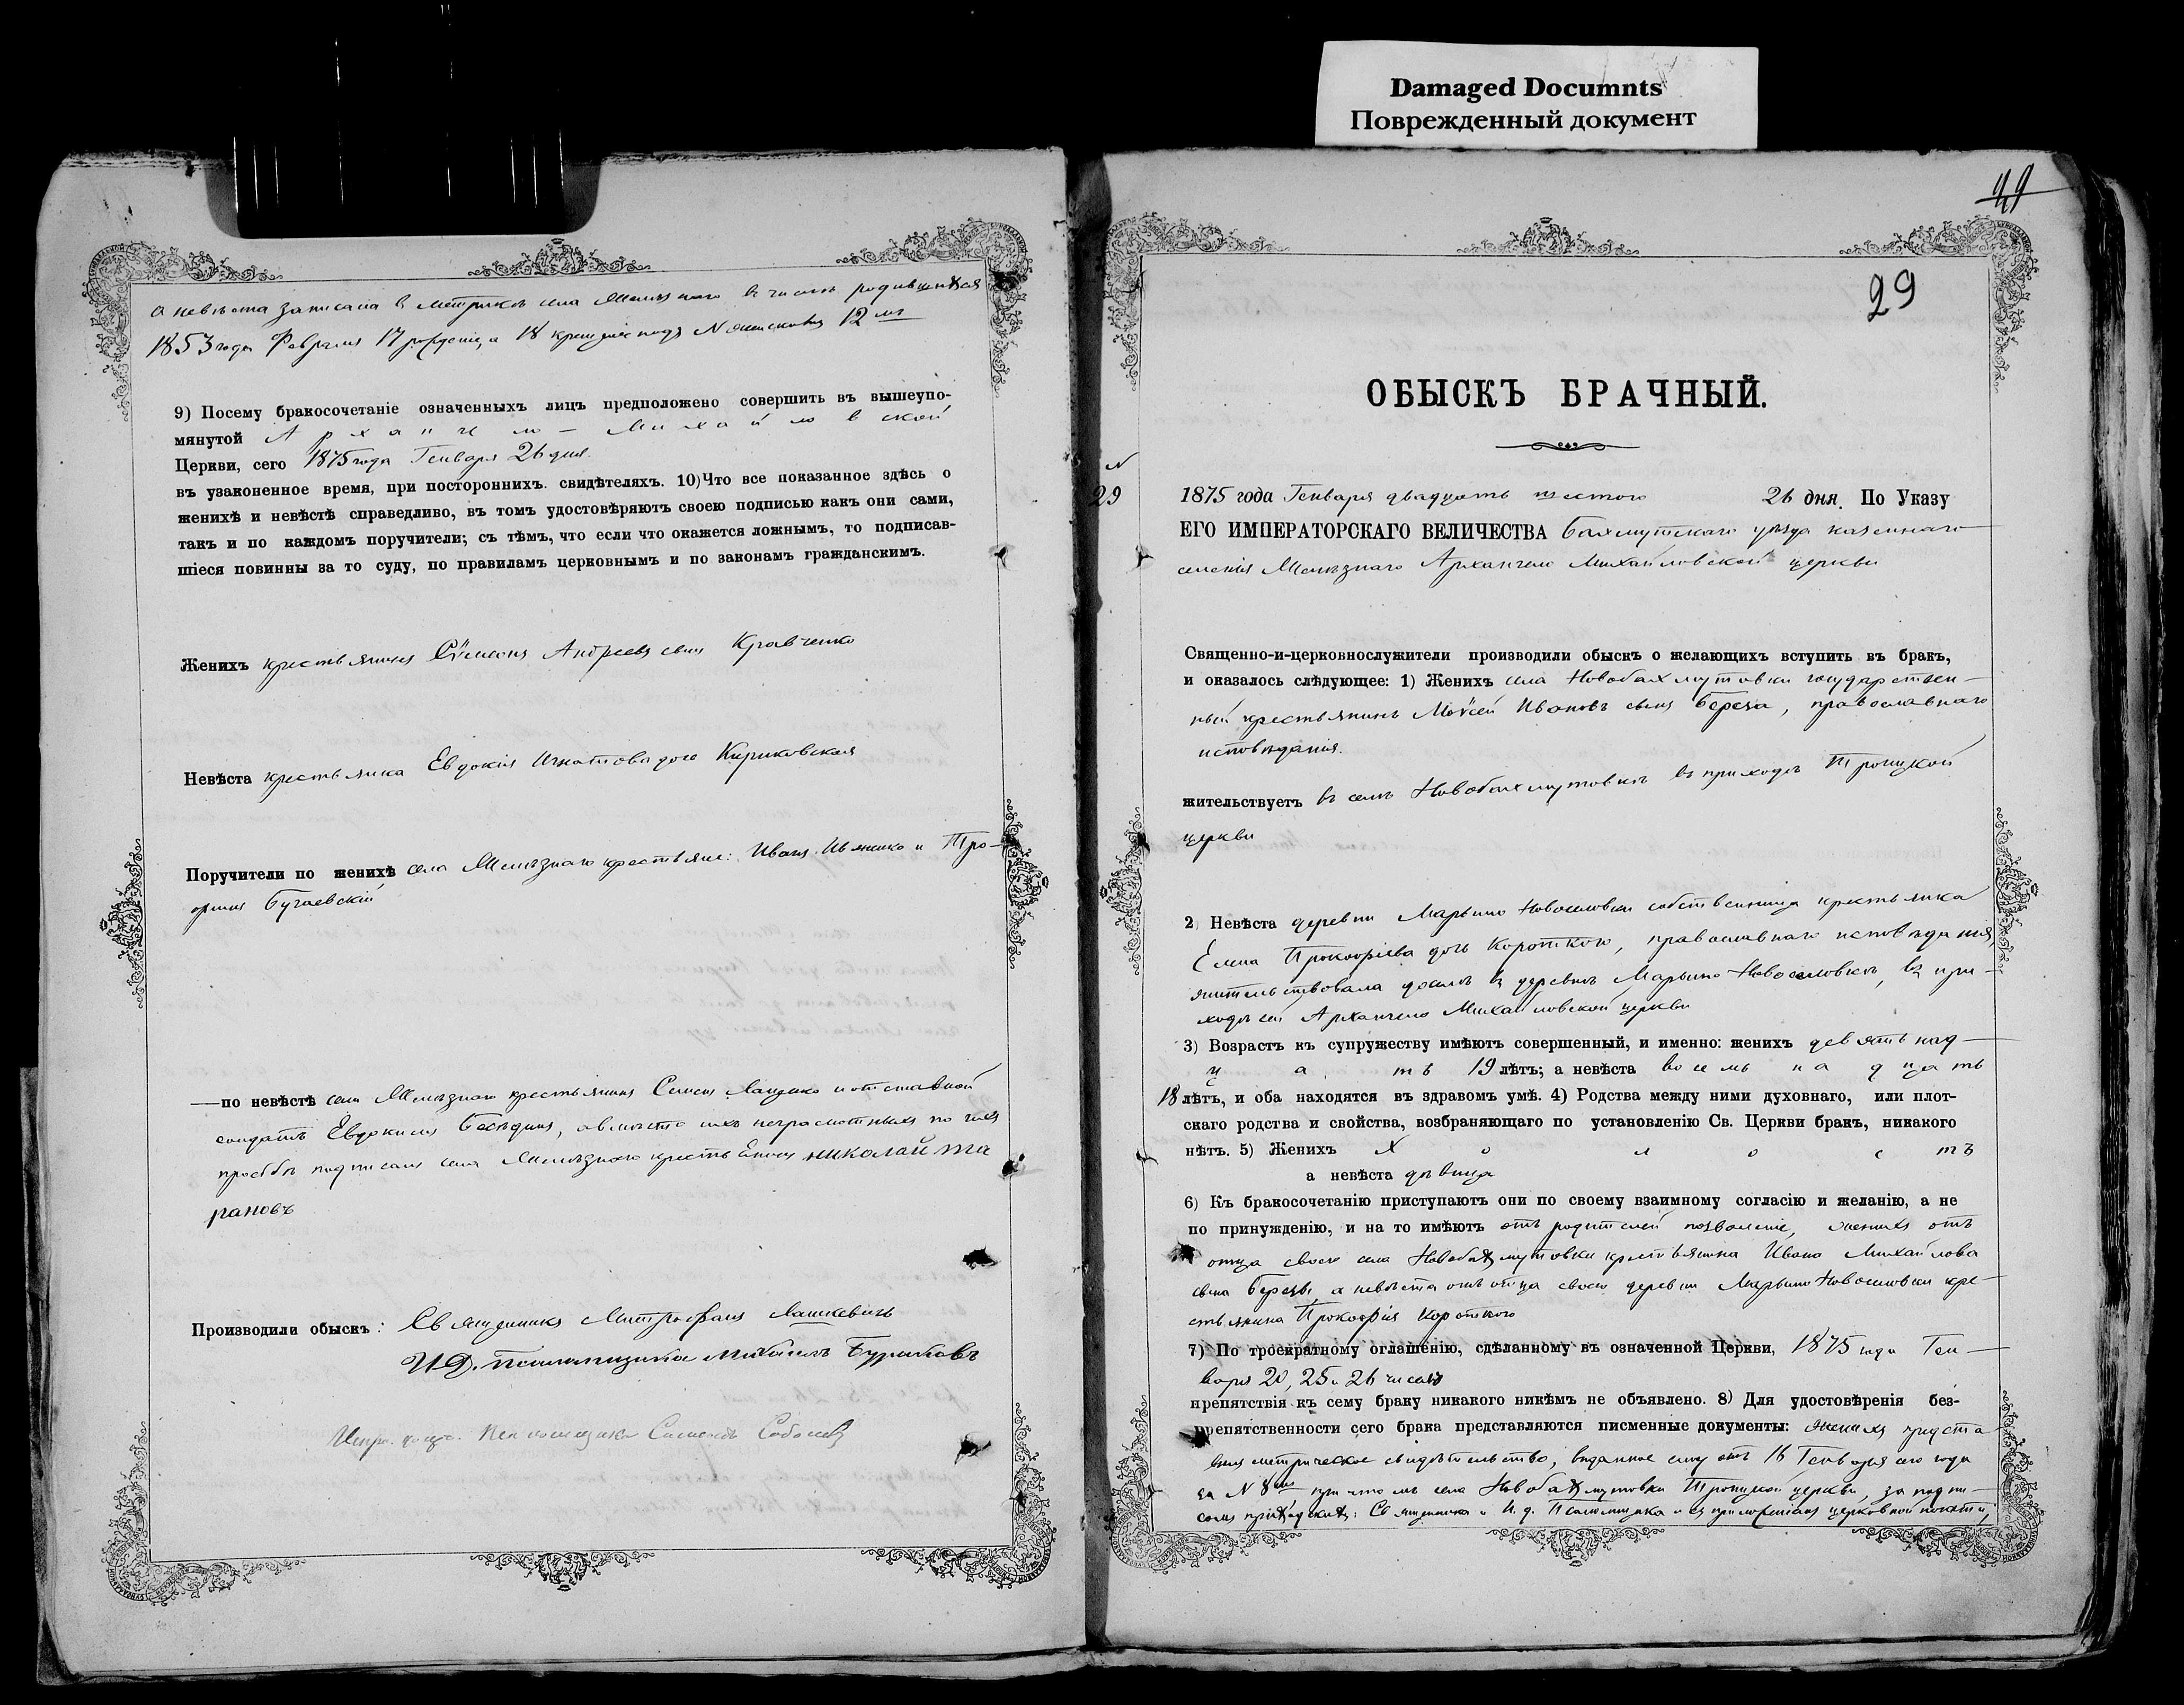 Damaged Documnts
Поврежденный документ
а невѣста записана в метрикѣ села Желѣзнаго въ числѣ родившихся
1853 года Февраля 17 рожденіе, а 18 крещеніе подъ N женскимъ 12 мъ
9) Посему бракосочетаніе означенныхъ лицъ предположено совершить въ вышеупо-
мянутой Архангело-Михайловской
Церкви, сего 1875 года Генваря 26 дня.
въ узаконенное время, при постороннихъ. свидѣтеляхъ. 10) Что все показанное здѣсь о
женихѣ и невѣстѣ справедливо, въ томъ удостовѣряютъ своею подписью какъ они сами,
такъ и по каждомъ поручители; съ тѣмъ, что если что окажется ложнымъ, то подписав-
шіеся повинны за то суду, по правиламъ церковнымъ и по законамъ гражданскимъ.
Женихъ крестьянинъ Сѵмеонъ Андреевъ сынъ Кравченко
Невѣста крестьянка Евдокія Игнатова дочь Кириковская
Поручители по женихѣ села Желѣзнаго крестьяне: Иванъ Ивянко и Тро-
фимъ Бугаевскій
— по невѣстѣ села Желѣзнаго крестьянинъ Семенъ Лащенко и отставной
солдатъ Евдокимъ Бесѣдинъ, а вмѣсто ихъ неграмотныхъ по ихъ
просьбѣ подписалъ села Желѣзнаго крестьянинъ николай та
рановъ
Производили обыскъ: Священникъ Митрофанъ Лашкевичъ
И. Д. псаломщика Михаилъ Бураковъ
Псаломщика Симеонъ Соболевъ
49
29
ОБЫСКЪ БРАЧНЫЙ.
N
29
1875 года Генваря двадцать шестого 26 дня. По Указу
ЕГО ИМПЕРАТОРСКАГО ВЕЛИЧЕСТВА Бахмутскаго уѣзда казеннаго
селенія Желѣзнаго Архангело Михайловской церкви
Священно-и-церковнослужители производили обыскъ о желающихъ вступить въ бракъ,
и оказалось слѣдующее: 1) Женихъ села Новобахмутовки государствен-
ный крестьянинъ Моѵсей Ивановъ сынъ Береза, православнаго
исповѣданія.
жительствуетъ въ селѣ Новобахмутовкѣ въ приходѣ Троицкой
церкви
2) Невѣста деревни Марьино Новоселовки собственница крестьянка
Елена Прокофіева дочь Короткою, православнаго исповѣданія,
жительствовала доселѣ въ деревнѣ Марьино-Новоселовкѣ, въ при-
ходѣ сей Архангело Михайловской церкви
3) Возрастъ къ супружеству имѣютъ совершенный, и именно: женихъ девятьнад-
цать 19 лѣтъ; а невѣста восемьнадцать
18 лѣтъ, и оба находятся въ здравомъ умѣ. 4) Родства между ними духовнаго, или плот-
скаго родства и свойства, возбраняющаго по установленію Св. Церкви бракъ, никакого
нѣтъ. 5) Женихъ Холостъ
а невѣста дѣвица
6) Къ бракосочетанію приступаютъ они по своему взаимному согласію и желанію, а не
по принужденію, и на то имѣютъ отъ родителей позволеніе, женихъ отъ
отца своего села Новобахмутовки крестьянина Ивана Михайлова
сына Березы, а невѣста отъ отца своего деревни Марьино Новоселовки кре-
стьянина Прокофія Короткого
7) По троекратному оглашенію, сдѣланному въ означенной Церкви, 1875 года Ген-
варя 20, 25 и 26 чиселъ
препятствія къ сему браку никакого никѣмъ не объявлено. 8) Для удостовѣренія без-
препятственности сего брака представляются писменные документы: женихъ предста
вилъ метрическое свидѣтельство, выданное ему отъ 16 Генваря сего года
за N 8 мъ причтомъ села Новобахмутовки Троицкой церкви, за подпи-
сомъ приходскихъ: Священника и И. д. Псаломщика и съ приложеніемъ церковной печати;